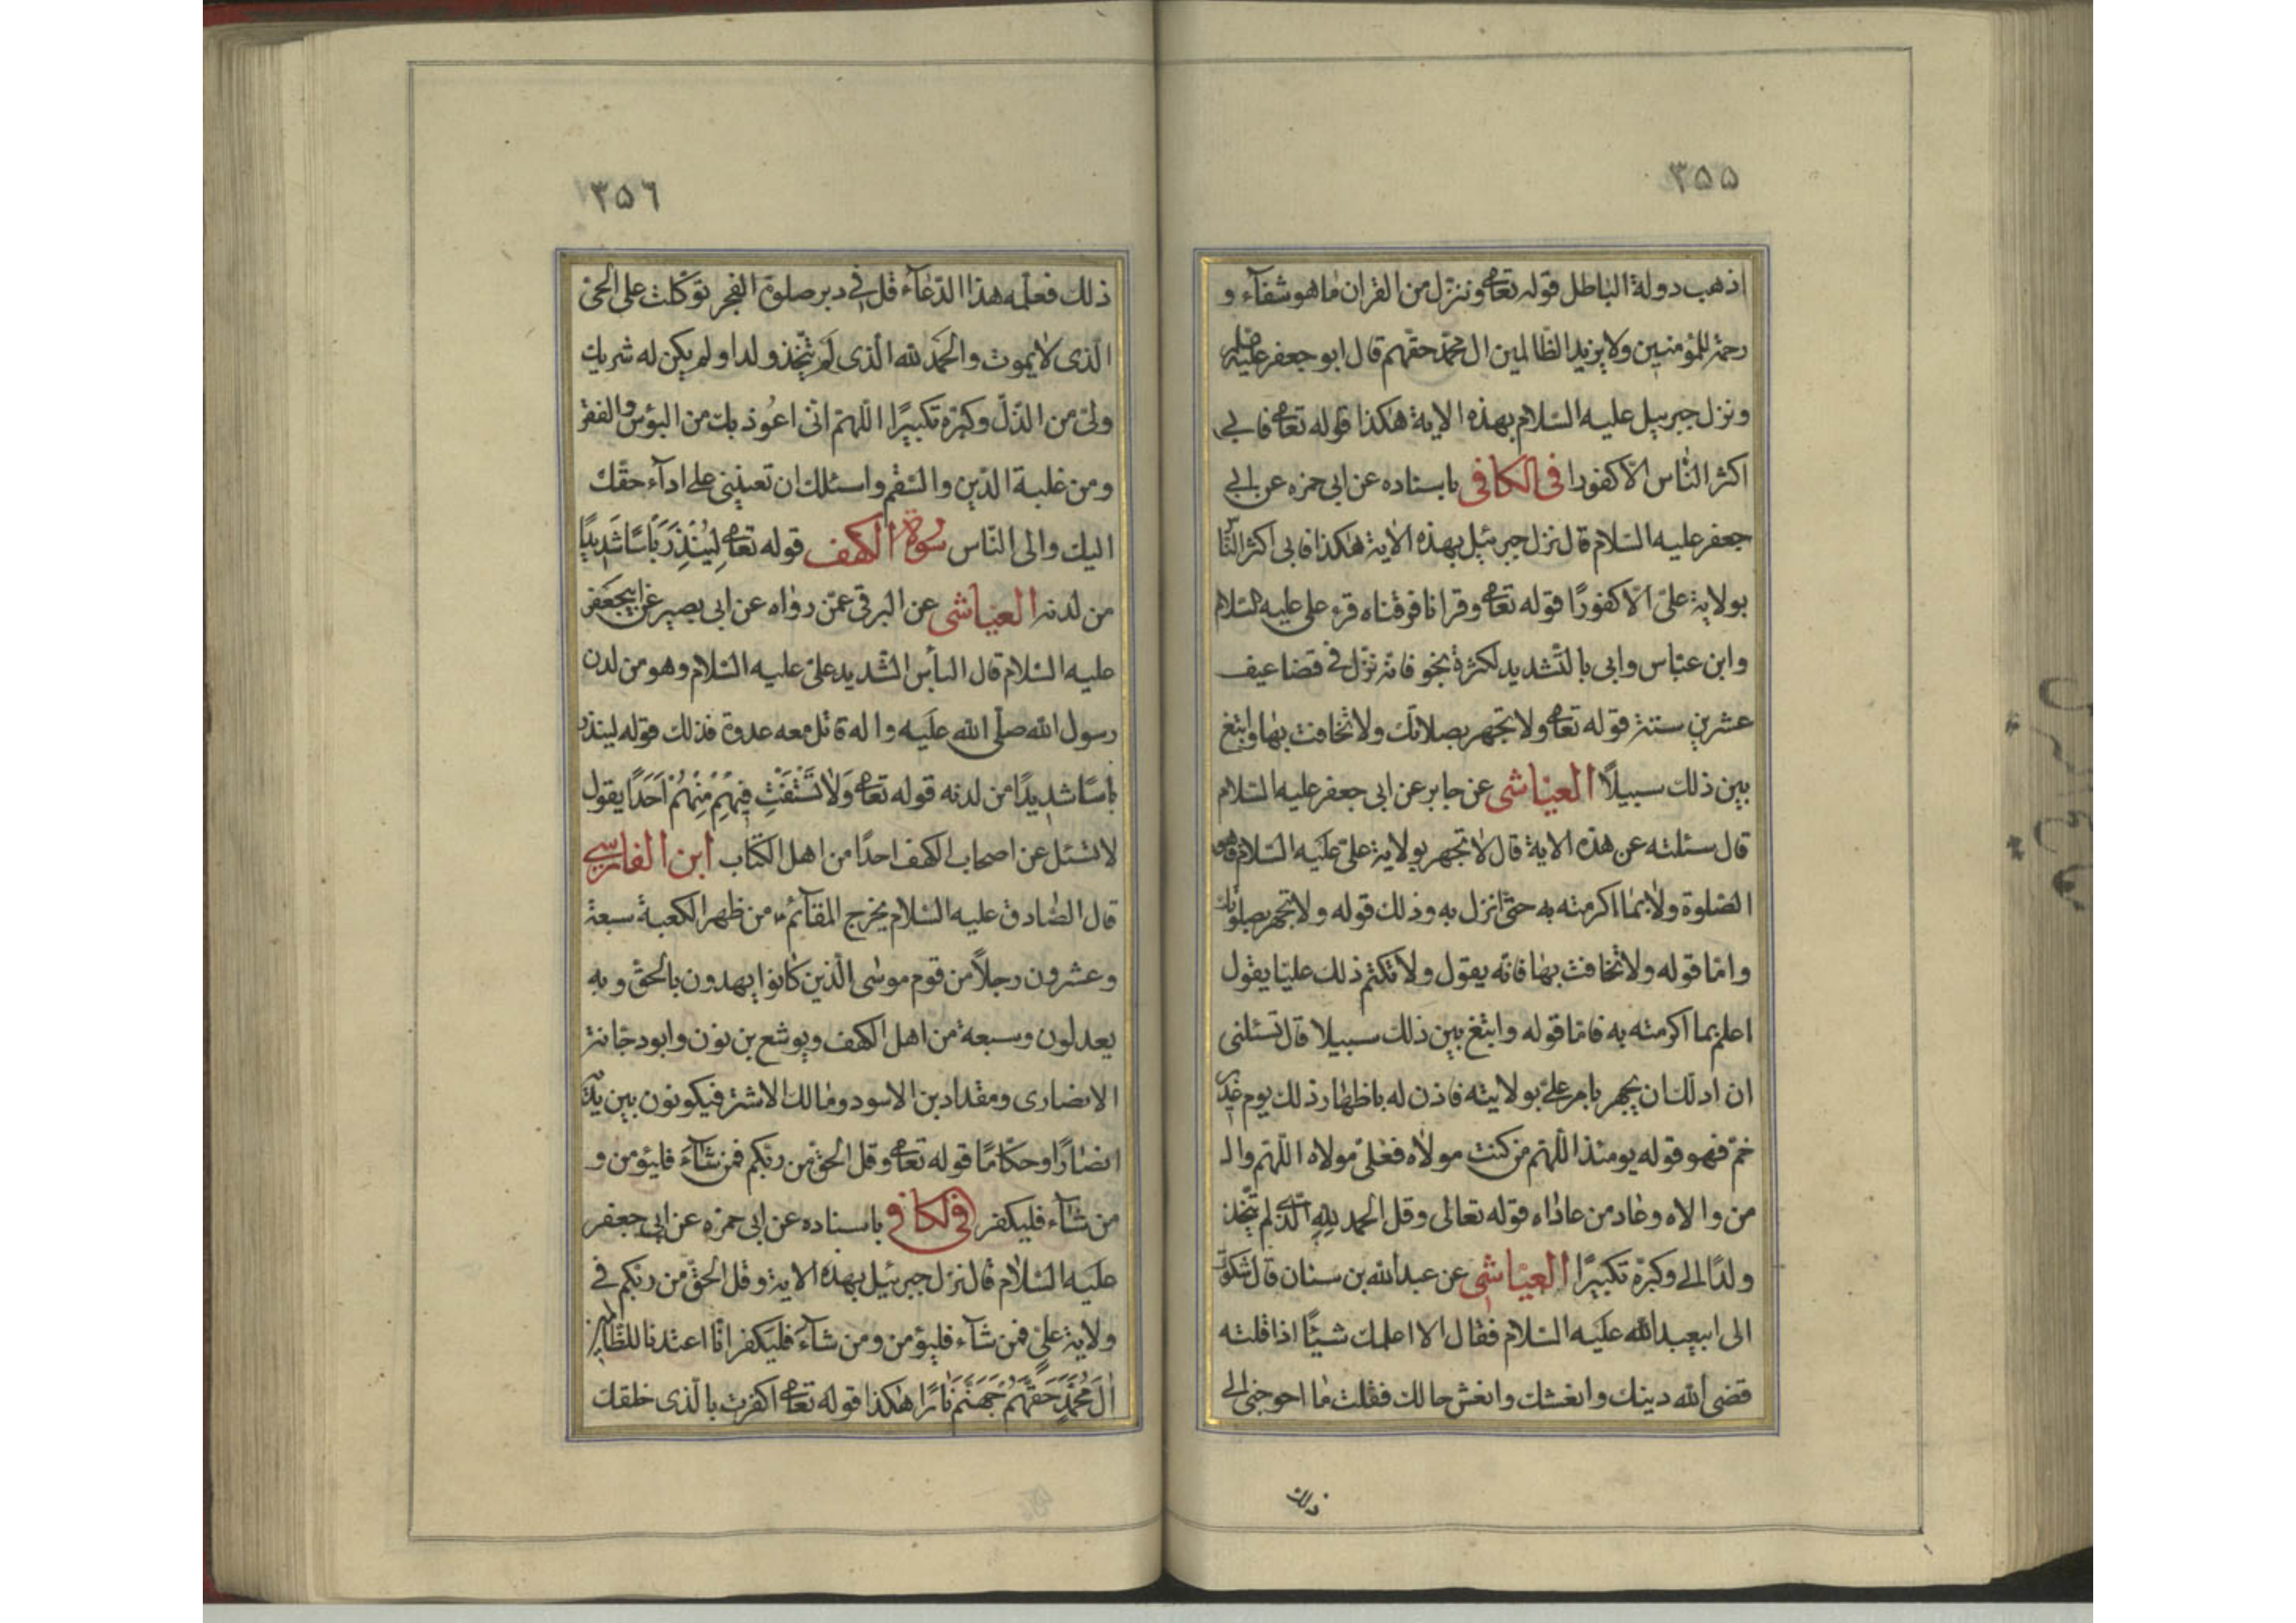 ۳۵۵
اذهب دولة الباطل قوله تعا وننزل من القران ما هو شفآء و
رحمة للمؤمنين ولا يزيد الظالمين ال محمد حقهم قال ابو جعفر عليه
ونزل جبرييل عليه السلام بهذه الاية هكذا قوله تعا فابى
اكثر الناس الا كفورا فى الكافى باسناده عن ابى حمزه عن ابى
جعفر عليه السلام قال نزل جبرئيل بهذه الاية هكذا فابى اكثر الناس
بولاية على الا كفورًا قوله تعا وقرانا فرقناه قرء على عليه السلام
وابن عباس وابى بالتشديد لكثرة نجو فانه نزل فى قضاعيف
عشرين سنة قوله تعا ولا تجهر بصلاتك ولا تخافت بها وابتغ
بين ذلك سبيلاً العياشى عن جابر عن ابى جعفر عليه السلام
قال سئلته عن هذه الاية قال لا تجهر بولاية على عليه السلام فهى
الصلوة ولا بما اكرمته به حتى انزل به وذلك قوله ولا تجهر بصلوتك
واما قوله ولا تخافت بها فانه يقول ولا تكتم ذلك عليا يقول
اعلم بما اكرمته به فاما قوله وابتغ بين ذلك سبيلا قال تسئلنى
ان ادلك ان يجهر بامر على بولايته فاذن له باظهار ذلك يوم غدير
خم فهو قوله يومئذ اللهم من كنت مولاه فعلى مولاه اللهم وال
من والاه وعاد من عاداه قوله تعالى وقل الحمد لله الذى لم يتخذ
ولدًا الى وكبره تكبيرًا العياشى عن عبدالله بن سنان قال شكوت
الى ابيعبدالله عليه السلام فقال الا اعلمك شيئًا اذا قلته
قضى الله دينك وانعشك وانعش حالك فقلت ما احوجنى الى
ذلك
۳۵۶
ذلك فعلمه هذا الدعآء قل فى دبر صلوة الفجر توكلت على الحى
الذى لا يموت والحمد لله الذى لم يتخذ ولدا ولم يكن له شريك
ولى من الذل وكبره تكبيرًا اللهم انى اعوذ بك من البؤس والفقر
ومن غلبة الدين والسقم واسئلك ان تعيننى على ادآء حقك
اليك والى الناس سورة الكهف قوله تعا لِيُنْذِرَ بَأسًا شَدِيدًا
من لدنه العياشى عن البرقى عمن رواه عن ابى بصير عن ابيجعفر
عليه السلام قال البأس الشديد على عليه السلام وهو من لدن
رسول الله صلى الله عليه واله قاتل معه عدوه فذلك قوله لينذر
باسًا شديدًا من لدنه قوله تعا وَلا تَسْتَفْتِ فِيهِمْ مِنْهُمْ اَحَدًا يقول
لا تسئل عن اصحاب الكهف احدًا من اهل الكتاب ابن الفارسى
قال الصادق عليه السلام يخرج القآئم من ظهر الكعبة سبعة
وعشرون رجلاً من قوم موسى الذين كانوا يهدون بالحق وبه
يعدلون وسبعة من اهل الكهف ويوشع بن نون وابو دجانة
الانصارى ومقداد بن الاسود ومالك الاشتر فيكونون بين يديه
انصارًا وحكامًا قوله تعا وقل الحق من ربكم فمن شآء فليؤمن و
من شآء فليكفر فى الكافى باسناده عن ابى حمزه عن ابى جعفر
عليه السلام قال نزل جبرئيل بهذه الاية وقل الحق من ربكم فى
ولاية على فمن شآء فليؤمن ومن شآء فليكفر انا اعتدنا للظالمين
الَ مُحَمَّدٍ حَقَّهُمْ جَهَنَّمَ نَارًا هكذا قوله تعا اكفرت بالذى خلقك